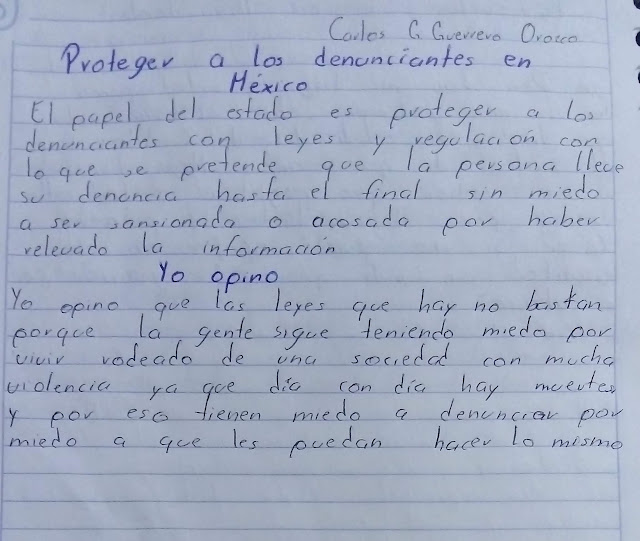 Carlos G Guerrero Orozco
Proteger a los denunciantes en
México
El papel del estado es proteger a los
denunciantes con leyes y regulación con
lo que se pretende que la persona lleve
su denuncia hasta el final sin miedo
a ser sansionada o acosada por haber
relevado la información
Yo opino
Yo opino que las leyes que hay no bastan
porque la gente sigue teniendo miedo por
vivir rodeado de una sociedad con mucha
violencia ya que día con día hay muertes
y por eso tienen miedo a denunciar por
miedo a que les puedan hacer lo mismo